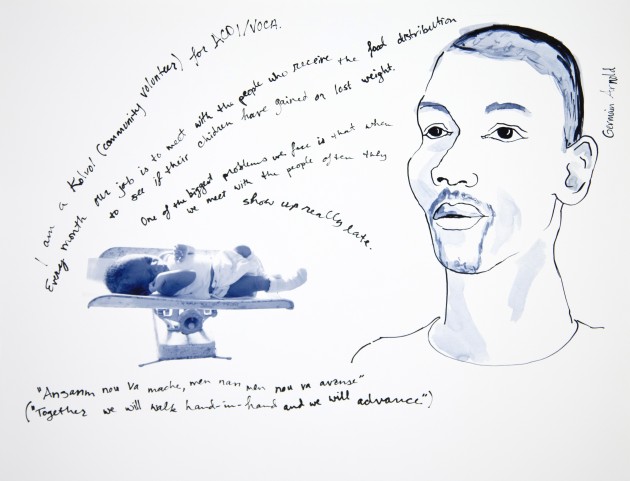 I am a Kolvol (community volunteer) for ACDI/VOCA.
Every month our job is to meet with the people who receive the food distribution
to see if their children have gained or lost weight.
One of the biggest problems we face is that when
we meet with the people often they
show up really late.
Germain Arnold
"Ansanm nou va mache, men nan men nou va avanse"
("Together we will walk hand-in-hand and we will advance")